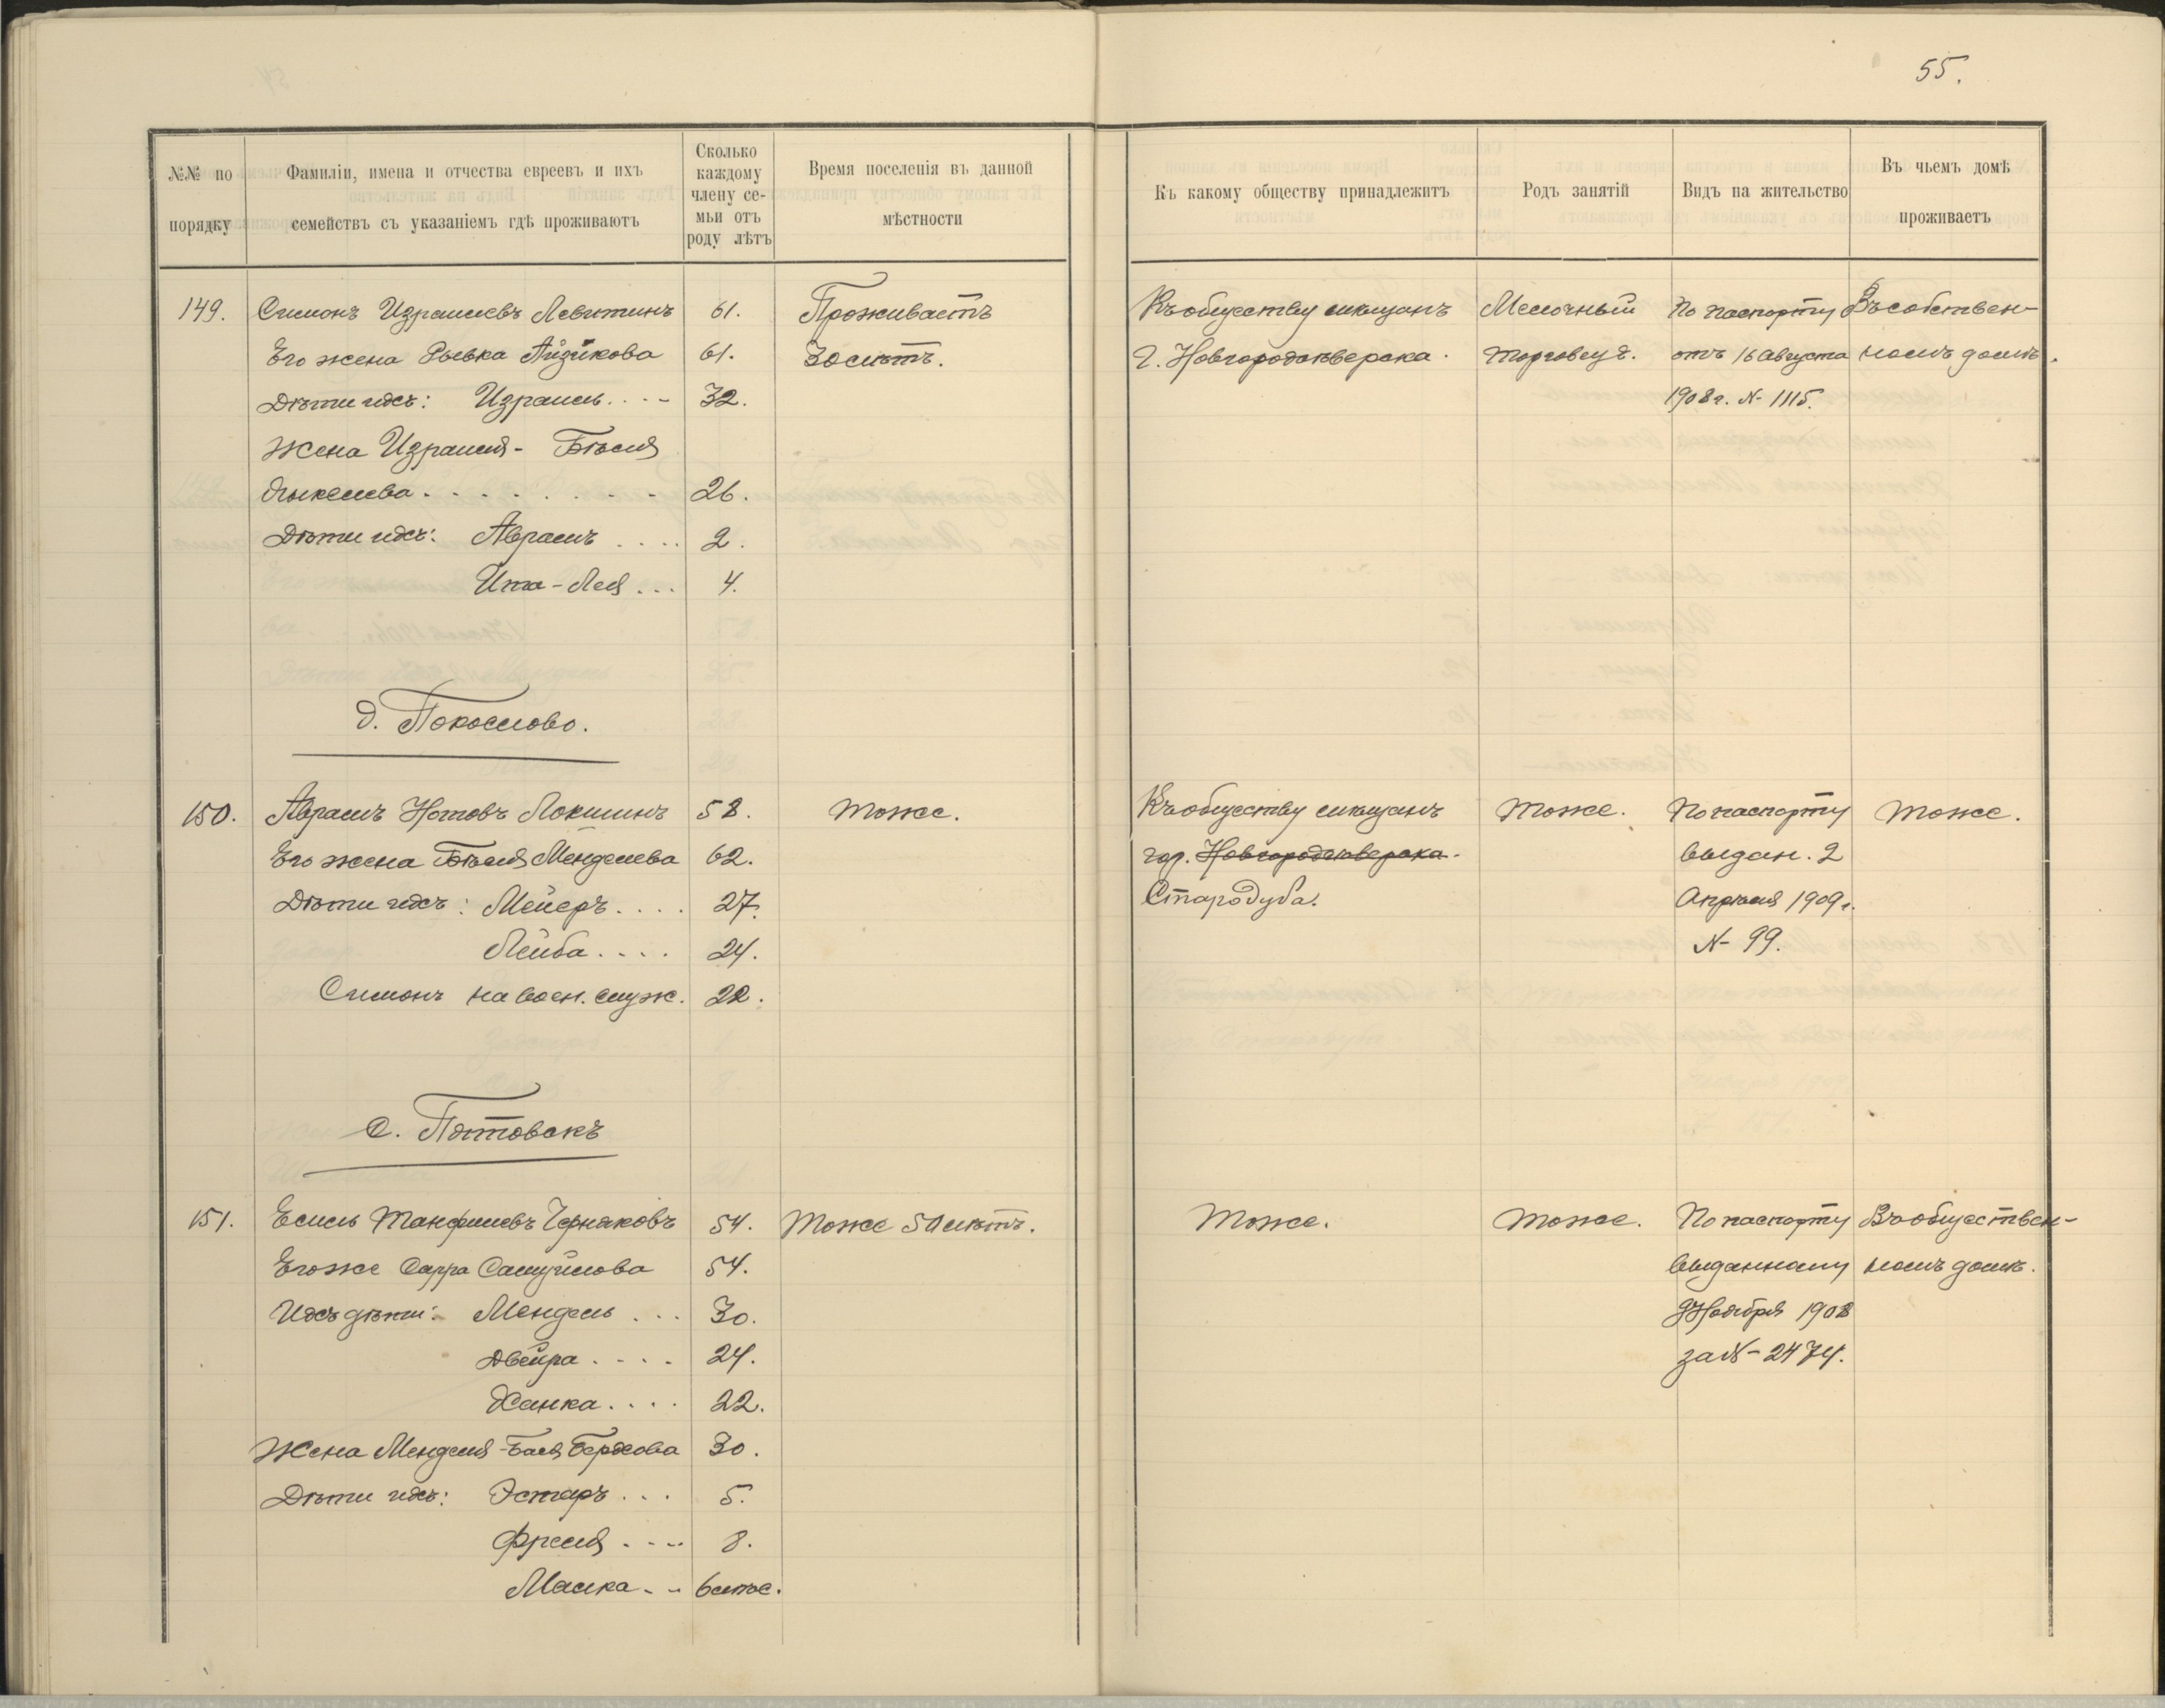 55.
№№ по порядку
Фамиліи, имена и отчества евреевъ и ихъ
семействъ съ указаніемъ гдѣ проживаютъ
Сколько
каждому
члену се-
мьи отъ
роду лѣтъ
Время поселенія въ данной
мѣстности
Къ какому обществу принадлежитъ
Родъ занятій
Видъ на жительство
Въ чьемъ домѣ
проживаетъ
149. Симонъ Израилевъ Левитинъ 61. Проживаетъ Къ обществу мѣщанъ Мелочный По паспорту Въ собствен-
Его жена Рывка Айзикова 61. 30 лѣтъ. г. Новгородсѣверска. торговецъ. отъ 16 Августа номъ домѣ.
Дѣти ихъ: Израиль.... 32. 1908 г. № 1115.
Жена Израиля - Бѣся
26.
Дѣти ихъ: Аврамъ .... 2.
Ита-Лея... 4.
д.
150. Аврамъ Нотовъ Локшинъ 58. Тоже. Къ обществу мѣщанъ Тоже. По паспорту Тоже.
Его жена Менделева 62. гор. Новгородсѣверска. выдан. 2
Дѣти ихъ: Мейеръ.... 27. Стародуба. Апрѣля 1909 г.
Лейба.... 24. № 99.
Симонъ на воен. служ. 22.
с. Пятовскъ
151. Черняковъ 54. Тоже 50 лѣтъ. Тоже. Тоже. По паспорту Въ обществен-
Его же Сарра Самуйлова 54. выданному номъ домѣ.
Ихъ дѣти: Мендель ... 30. 9 Ноября 1908
Двейра.... 24. за № 2474.
Ханка.... 22.
Жена Менделя - Бася Беркова 30.
Дѣти ихъ: Эстеръ... 5.
8.
Малка.. 6 мѣс.